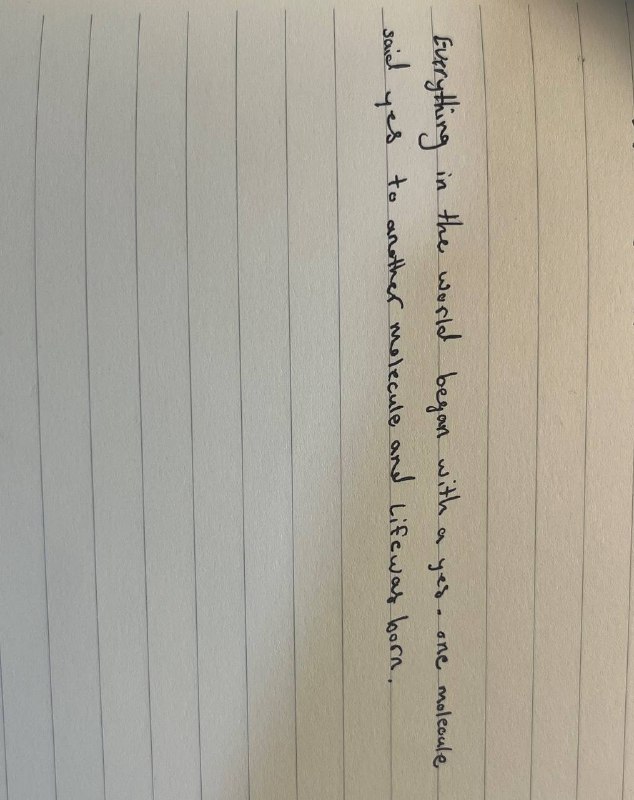 Everything in the world began with a yes. one molecule
said yes to another molecule and Life was born.